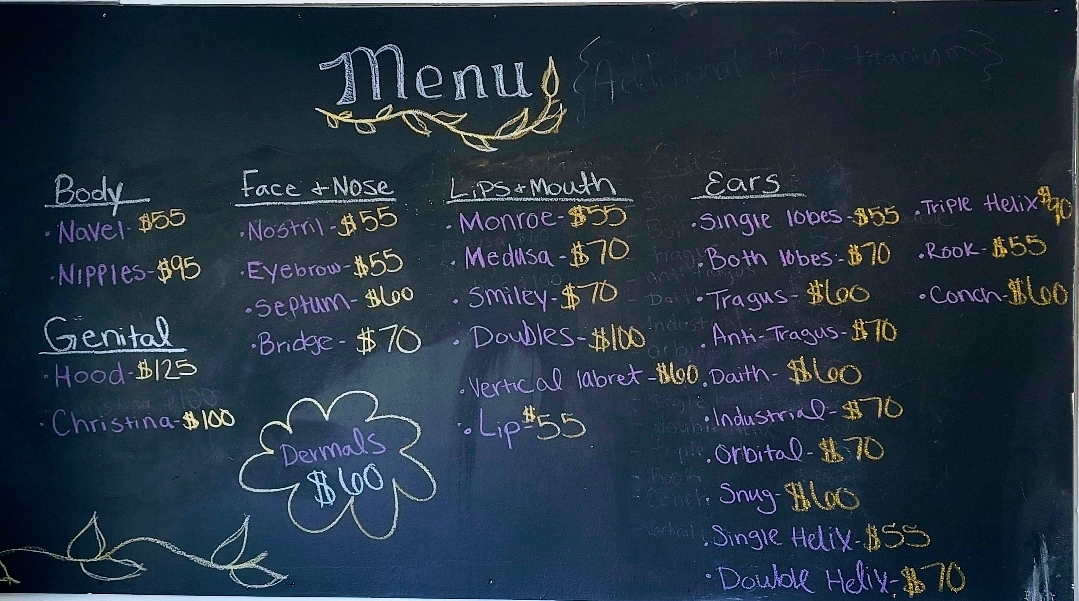 Menu
{Additional titanium}
Body
· Navel - $55
· Nipples - $95
Genital
· Hood - $125
· Christina - $100
Face + Nose
· Nostril - $55
· Eyebrow - $55
· Septum - $60
· Bridge - $70
Dermals
$60
Lips + Mouth
· Monroe - $55
· Medusa - $70
· Smiley - $70
· Doubles - $100
· Vertical labret - $60
· Lip - $55
Ears
· Single lobes - $55
· Both lobes - $70
· Tragus - $60
· Anti-Tragus - $70
· Daith - $60
· Industrial - $70
· Orbital - $70
· Snug - $60
· Single Helix - $55
· Double Helix - $70
· Triple Helix $90
· Rook - $55
· Conch - $60